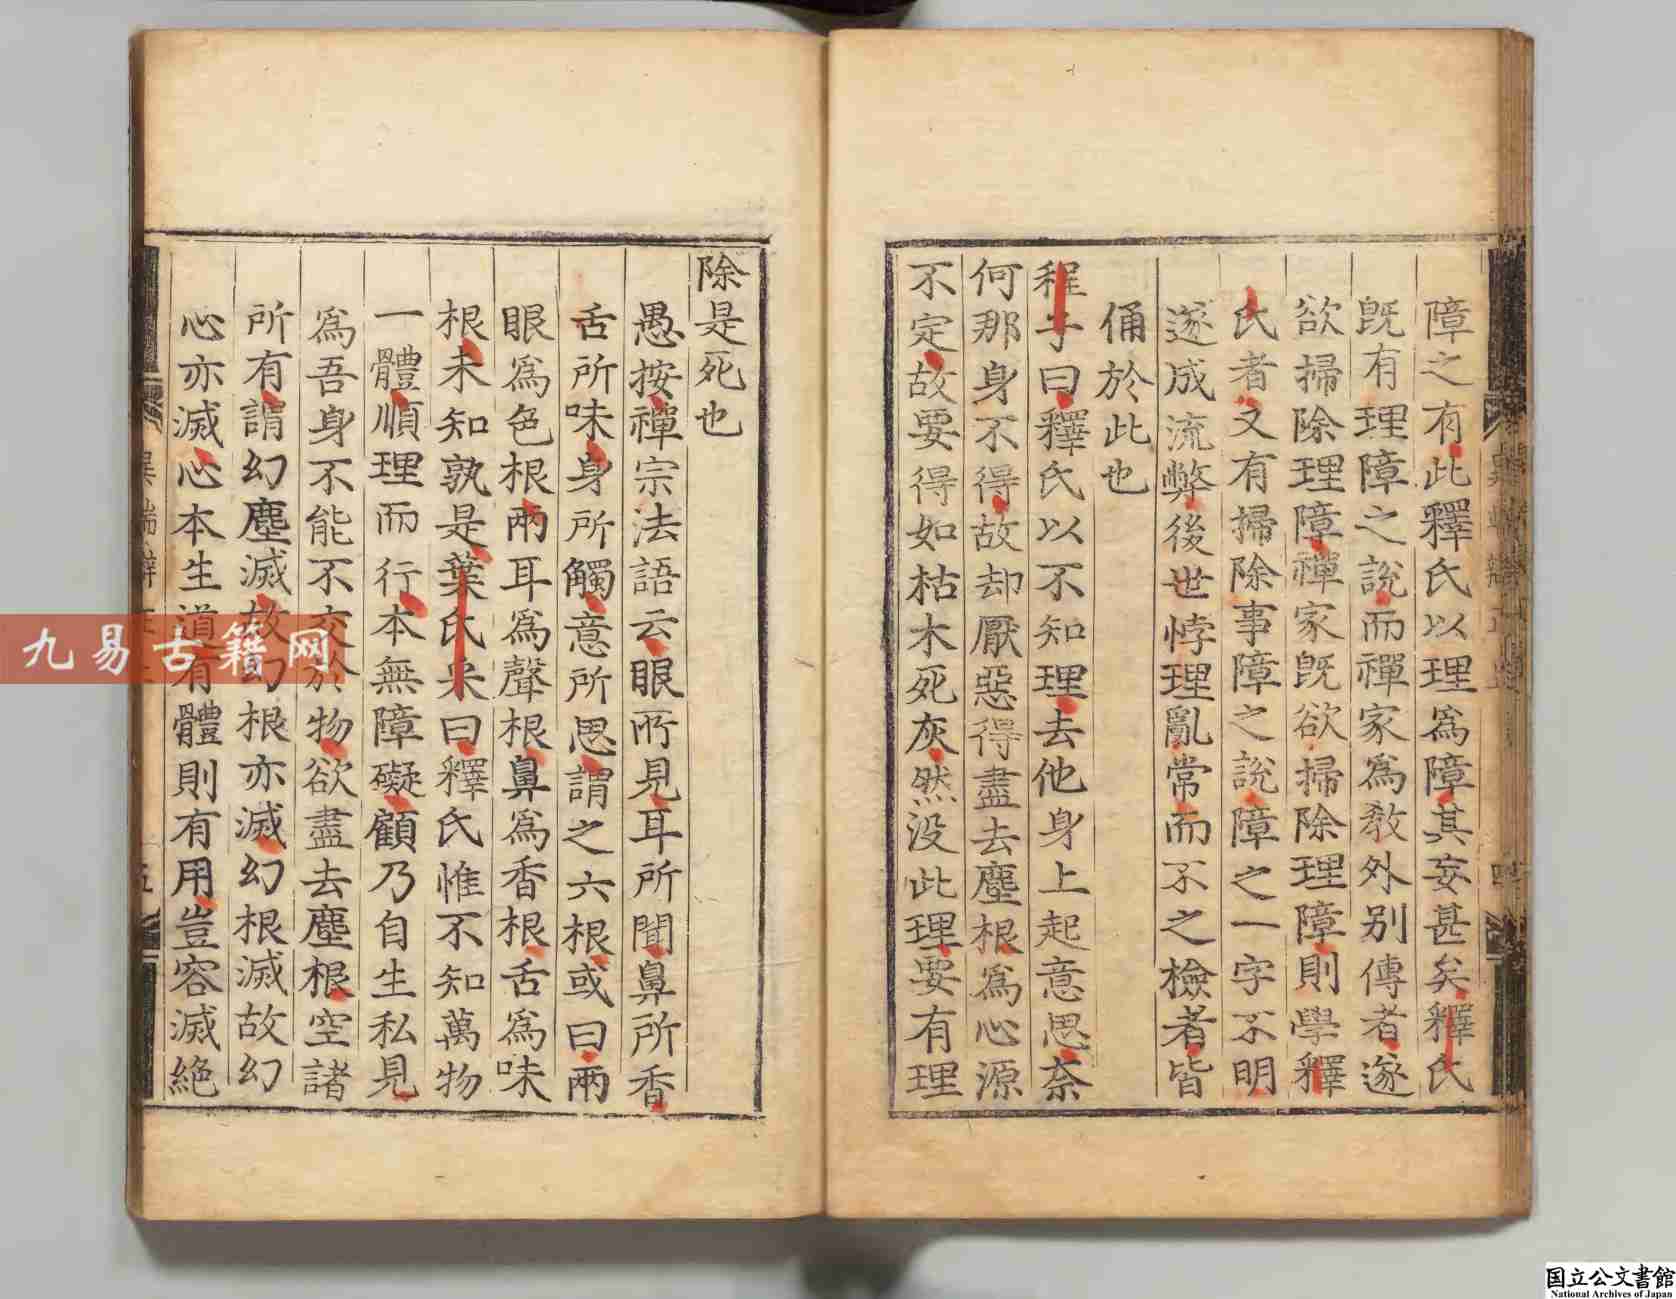 障之有此釋氏以理爲障其妄甚矣釋氏
既有理障之說而禪家爲教外別傳者遂
欲掃除理障禪家既欲掃除理障則學釋
氏者又有掃除事障之說障之一字不明
遂成流弊後世悖理亂常而不之檢者皆
俑於此也
程子曰釋氏以不知理去他身上起意思奈
何那身不得故却厭惡得盡去塵根爲心源
不定故要得如枯木死灰然没此理要有理
除是死也
愚按禪宗法語云眼所見耳所聞鼻所香
舌所味身所觸意所思謂之六根或曰兩
眼爲色根兩耳爲聲根鼻爲香根舌爲味
根未知孰是葉氏采曰釋氏惟不知萬物
一體順理而行本無障礙顧乃自生私見
爲吾身不能不交於物欲盡去塵根空諸
所有謂幻塵滅故幻根亦滅幻根滅故幻
心亦滅心本生道有體則有用豈容滅絕
九易古籍网
国立公文書館
National Archives of Japan